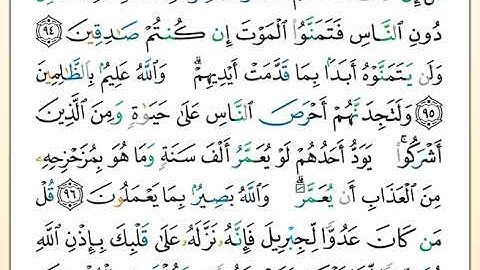 دُونِ ٱلنَّاسِ فَتَمَنَّوُا۟ ٱلْمَوْتَ إِن كُنتُمْ صَـٰدِقِينَ ٩٤
وَلَن يَتَمَنَّوْهُ أَبَدًۢا بِمَا قَدَّمَتْ أَيْدِيهِمْ ۗ وَٱللَّهُ عَلِيمٌۢ بِٱلظَّـٰلِمِينَ
٩٥ وَلَتَجِدَنَّهُمْ أَحْرَصَ ٱلنَّاسِ عَلَىٰ حَيَوٰةٍ وَمِنَ ٱلَّذِينَ
أَشْرَكُوا۟ ۚ يَوَدُّ أَحَدُهُمْ لَوْ يُعَمَّرُ أَلْفَ سَنَةٍ وَمَا هُوَ بِمُزَحْزِحِهِۦ
مِنَ ٱلْعَذَابِ أَن يُعَمَّرَ ۗ وَٱللَّهُ بَصِيرٌۢ بِمَا يَعْمَلُونَ ٩٦ قُلْ
مَن كَانَ عَدُوًّا لِّجِبْرِيلَ فَإِنَّهُۥ نَزَّلَهُۥ عَلَىٰ قَلْبِكَ بِإِذْنِ ٱللَّهِ